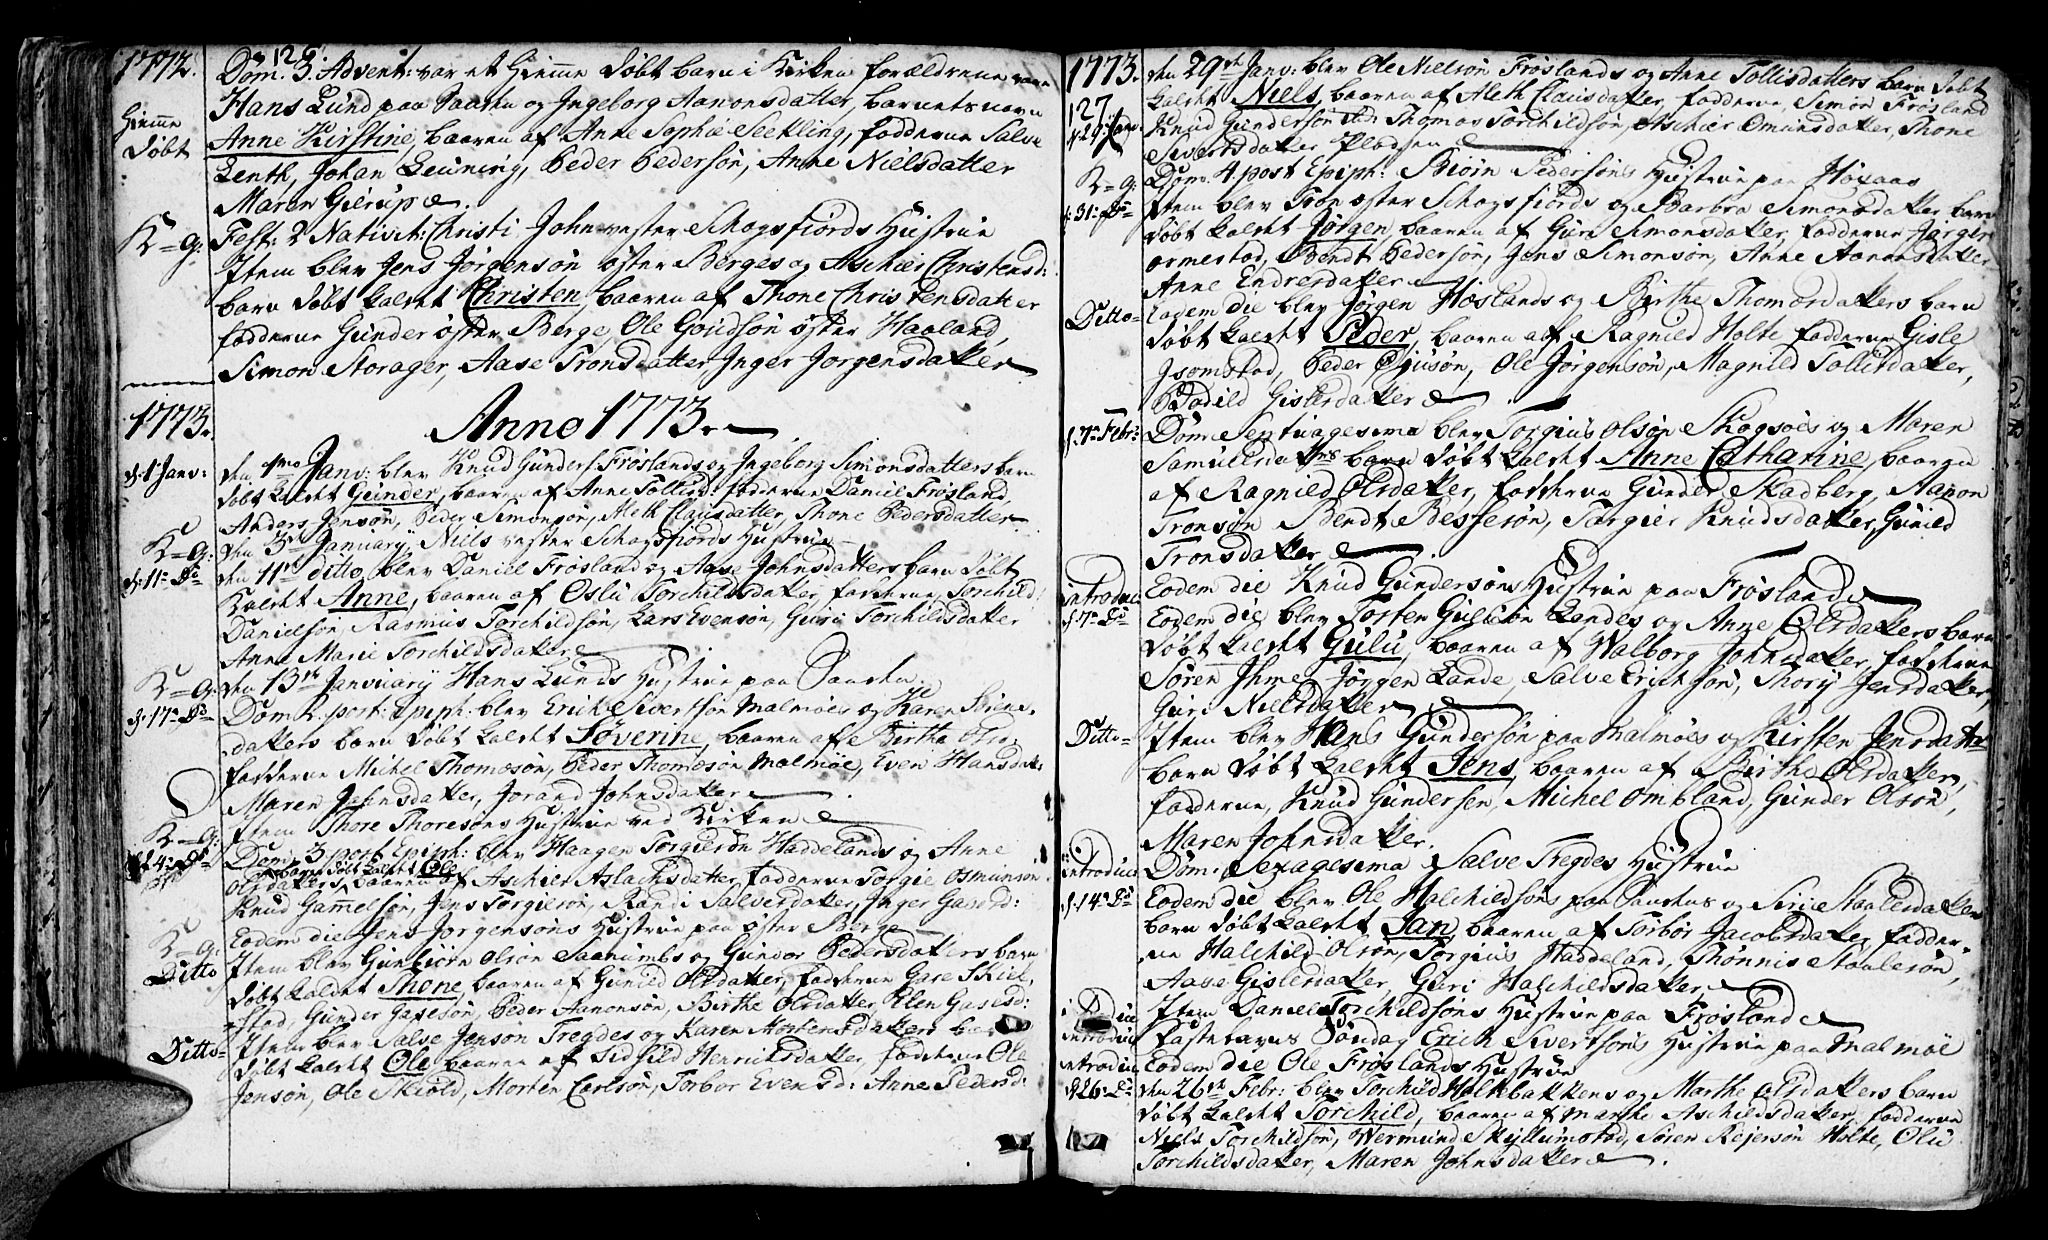 1772.
126.
Dom. 3. Advent: var et Hiemme døbt barn i Kirken forældrene vare
Hans Lund paa Saasku og Ingeborg Aanonsdatter, barnets navn
Hiemme
døbt
Anne Kirstine, baaren af Anne Sophie Seekling, fadderne Salve
Lenth, Johan Leuning, Peder Pedersøn, Anne Nielsdatter
Maren Gierup
K=g: Fest: 2 Nativit: Christi John vester Schogsfiords Hustrue
Item blev Jens Jørgensøn øster Berges og Aschier Christensd:
barn døbt kaldet Christen, baaren af Thone Christensdatter
fadderne Gunder øster Berge, Ole Goudsøn øster Haaland,
Simon Storager, Aase Tronsdatter, Inger Jorgensdatter
1773.
Anno 1773.
d: 1 Janv: den 1mo Janv: blev Knud Gunders. Frøslands og Ingeborg Simonsdatters barn
døbt kaldet Gunder, baaren af Anne Tollisd: fadderne Daniel Frøsland,
Anders Jensøn, Peder Simonsøn, Aleth Clausdatter, Thone Pedersdatter
K=g: den 3die Januarij Niels vester Schogsfiords Hustrue
d: 11te Do den 11te ditto blev Daniel Frøsland og Aase Johnsdatters barn døbt
Kaldet Anne, baaren af Oslu Torchildsdatter, fadderne, Torchild
Danielsøn, Rasmus Torchildsøn, Lars Evensøn, Guri Torchildsdatter
Anne Marie Torchildsdatter
K=g: den 13de Januarij Hans Lunds Hustrue paa Saasku.
d: 17de Do Dom. 2. post. Epiph: blev Erich Sivertsøn Malmøes og Karen Sørens-
datters barn døbt kaldet Søverine, baaren af Birthe Olsd:
fadderne Michel Thomæsøn, Peder Thomæsøn Malmøe, Even Hansdatter
Maren Johnsdatter, Jorand Johnsdatter
K=g: Item Thore Thoresøns Hustrue ved Kirken
24de Do Dom: 3 post Epiph: blev Haagen Torgiersøn Haddelands og Anne
barn døbt kaldet Ole
Olsdatters, baaren af Aschier Aslachsdatter, fadderne Torgie Osmunsøn
Knud Gammelsøn, Jens Torgiersøn, Randi Salvesdatter, Inger Gasesd:
K=g: Eodem die Jens Jorgensøns Hustrue paa øster Berge
Ditto Item blev Gunbiørn Olsøn Saanumbs og Gundor Pedersdatters barn
døbt kaldet Thone, baaren af Gunild Olsdatter, fadderne Gase Skiel-
stad, Gunder Gasesøn, Peder Aanonsøn, Birthe Olsdatter, Elen Gasesd:
Ditto Item blev Salve Jensøn Tregdes og Karen Mortensdatters barn
døbt kaldet Ole, baaren af Sidsild Henrichsdatter, fadderne Ole
Jensøn, Ole Skiold, Morten Carlsøn, Torbor Evensd: Anne Pedersd:
1773.
127
d: 29: Janv: den 29de Janv: blev Ole Nielsøn Frøslands og Anne Tollisdatters barn døbt
kaldet Niels, baaren af Aleth Clausdatter, fadderne, Simon Frøsland
Knud Gundersøn ibd: Thomas Torchildsøn, Aschier Omunsdatter, Thone
Sivertsdatter Pladsen
K=g: Dom. 4. post Epiph: Biørn Pedersøns Hustrue paa Høyaas
d: 31: Do Item blev Tron øster Schogsfiords og Barbra Simonsdatter barn
døbt kaldet Jørgen, baaren af Guri Simonsdatter, fadderne Jørgen
Ormestad, Bendt Pedersøn, Jens Simonsøn, Anne Aanonsdatter
Anne Endresdatter
Ditto Eodem die blev Jørgen Høslands og Birthe Thomasdatters barn
døbt kaldet Peder, baaren af Ragnild Holte, fadderne Gisle
Isomstad, Peder Gjusøn, Ole Jørgensøn, Magnild Tollisdatter,
Bodild Gislesdatter
d. 7de Febr: Dom. Septuagesima blev Torgius Olsøn Skogsøes og Maren
Samuelsdatters barn døbt kaldet Anne Catharine, baaren
af Ragnild Olsdatter, fadderne Gunder Skadberg, Aanon
Tronsøn Bendt Bessesøn, Targier Knudsdatter, Gunild
Tronsdatter
introduc: Eodem die Knud Gundersøns Hustrue paa Frøsland
d. 7de Do Eodem die blev Torten Gulusøn Landes og Anne Olsdatters barn
døbt kaldet Gulu, baaren af Walborg Johnsdatter, fadderne
Søren Ihme, Jørgen Lande, Salve Erichsøn, Thorij Jensdatter
Guri Nielsdatter
Ditto Item blev Hans Gundersøn paa Malmøes og Kirsten Jensdatter
barn døbt kaldet Jens, baaren af Birthe Olsdatter,
fadderne, Knud Gundersen, Michel Ombland, Gunder Olsøn,
Maren Johnsdatter.
introduc Dom: Sexagesima Salve Tregdes Hustrue
d. 14de Do Eodem die blev Ole Halchildsøns paa Sauskus og Siri Staalesdatter
barn døbt kaldet Jan, baaren af Torbor Jacobsdatter, fadder-
ne Halchild Olsøn, Torgius Haddeland, Thønnis Staalesøn,
Aase Gislesdatter, Guri Halchildsdatter
introduc Item Daniel Torchildsøns Hustrue paa Frøsland
introduc Fastelavns Søndag Erich Sivertsøns Hustrue paa Malmøe
introduc Eodem die Ole Frøslands Hustrue
d. 26: Do den 26de Febr: blev Torchild Holtebakkens og Marthe Olsdatters barn
døbt kaldet Torchild, baaren af Marthe Aschildsdatter, fadderne
Niels Torchildsøn, Wermund Skyllumstad, Søren Rejersøn Holte, Olu
Torchildsdatter, Maren Johnsdatter